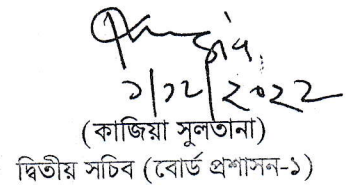 ১/১২/২০২২
(কাজিয়া সুলতানা)
দ্বিতীয় সচিব (বোর্ড প্রশাসন-১)